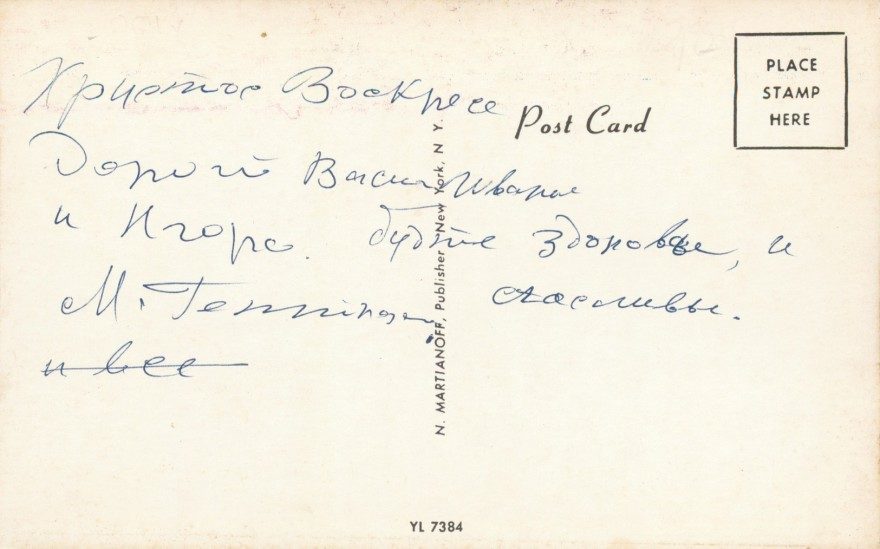 Христос Воскресе
Дорогой
и Игорь. будьте здоровы, и
счасливы.
и все
Post Card
PLACE
STAMP
HERE
N. MARTIANOFF, Publisher New York, N Y.
YL 7384